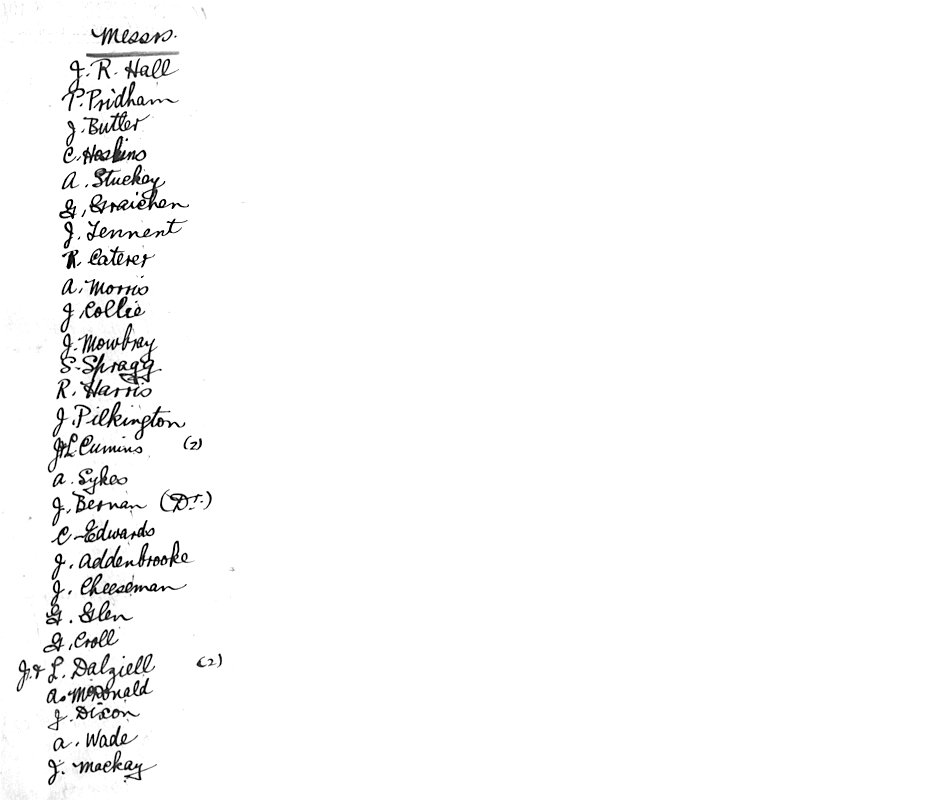 Messrs.
J. R. Hall
P. Pridham
J. Butler
C. Hoskins
A. Stuckey
G. Graichen
J. Tennent
R. Caterer
A. Morris
J. Collie
J. Mowbray
S. Spragg
R. Harris
J. Pilkington
J & L Cumins (2)
A. Sykes
J. Bernan (Dr.)
C. Edwards
J. Addenbrooke
J. Cheeseman
G. Glen
G. Croll
J. & L. Dalziell (2)
A. McDonald
J. Dixon
A. Wade
J. Mackay